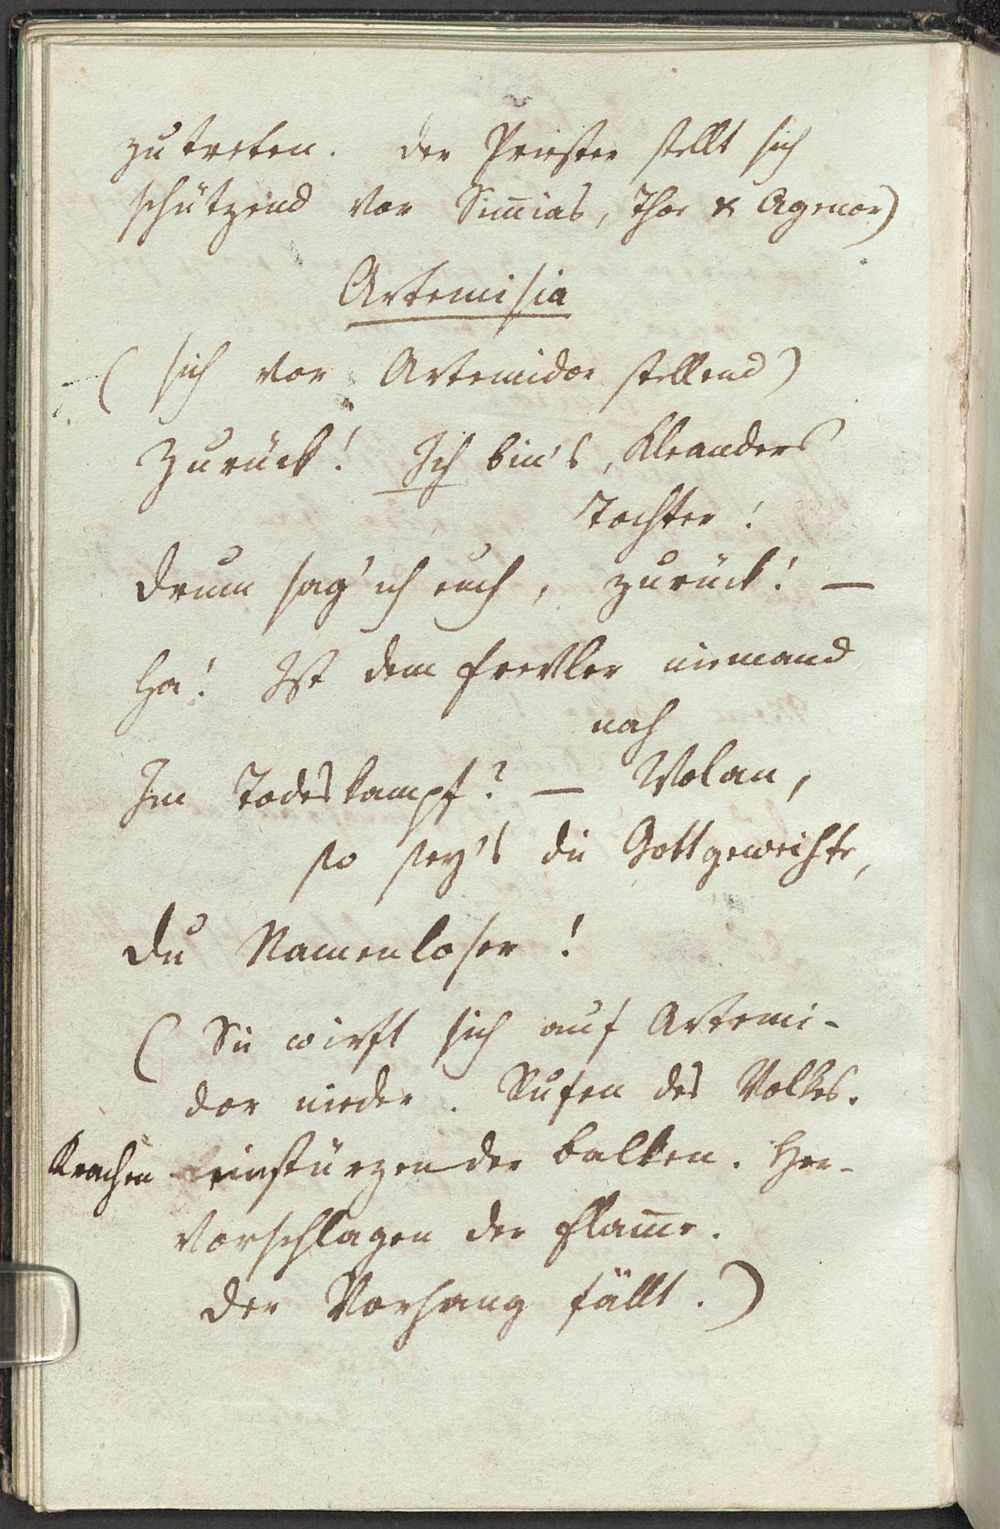 zutreten. Der Priester stellt sich
schützend vor Sim̅ias, Thor & Agenor)
Artemisia
( sich vor Artemidor stellend)
Zurück! Ich bin's, Kleanders
Tochter!
Drum sag' ich euch, zurück! —
Ha! Ist dem Frevler niemand
nah
Im Todeskampf? — Wolan,
so sey's die Gottgeweihte,
Du Namenloser!
( Sie wirft sich auf Artemi-
dor nieder. Rufen des Volkes.
Krachen einstürzender Balken. Her-
vorschlagen der Flam̅e.
Der Vorhang fällt.)